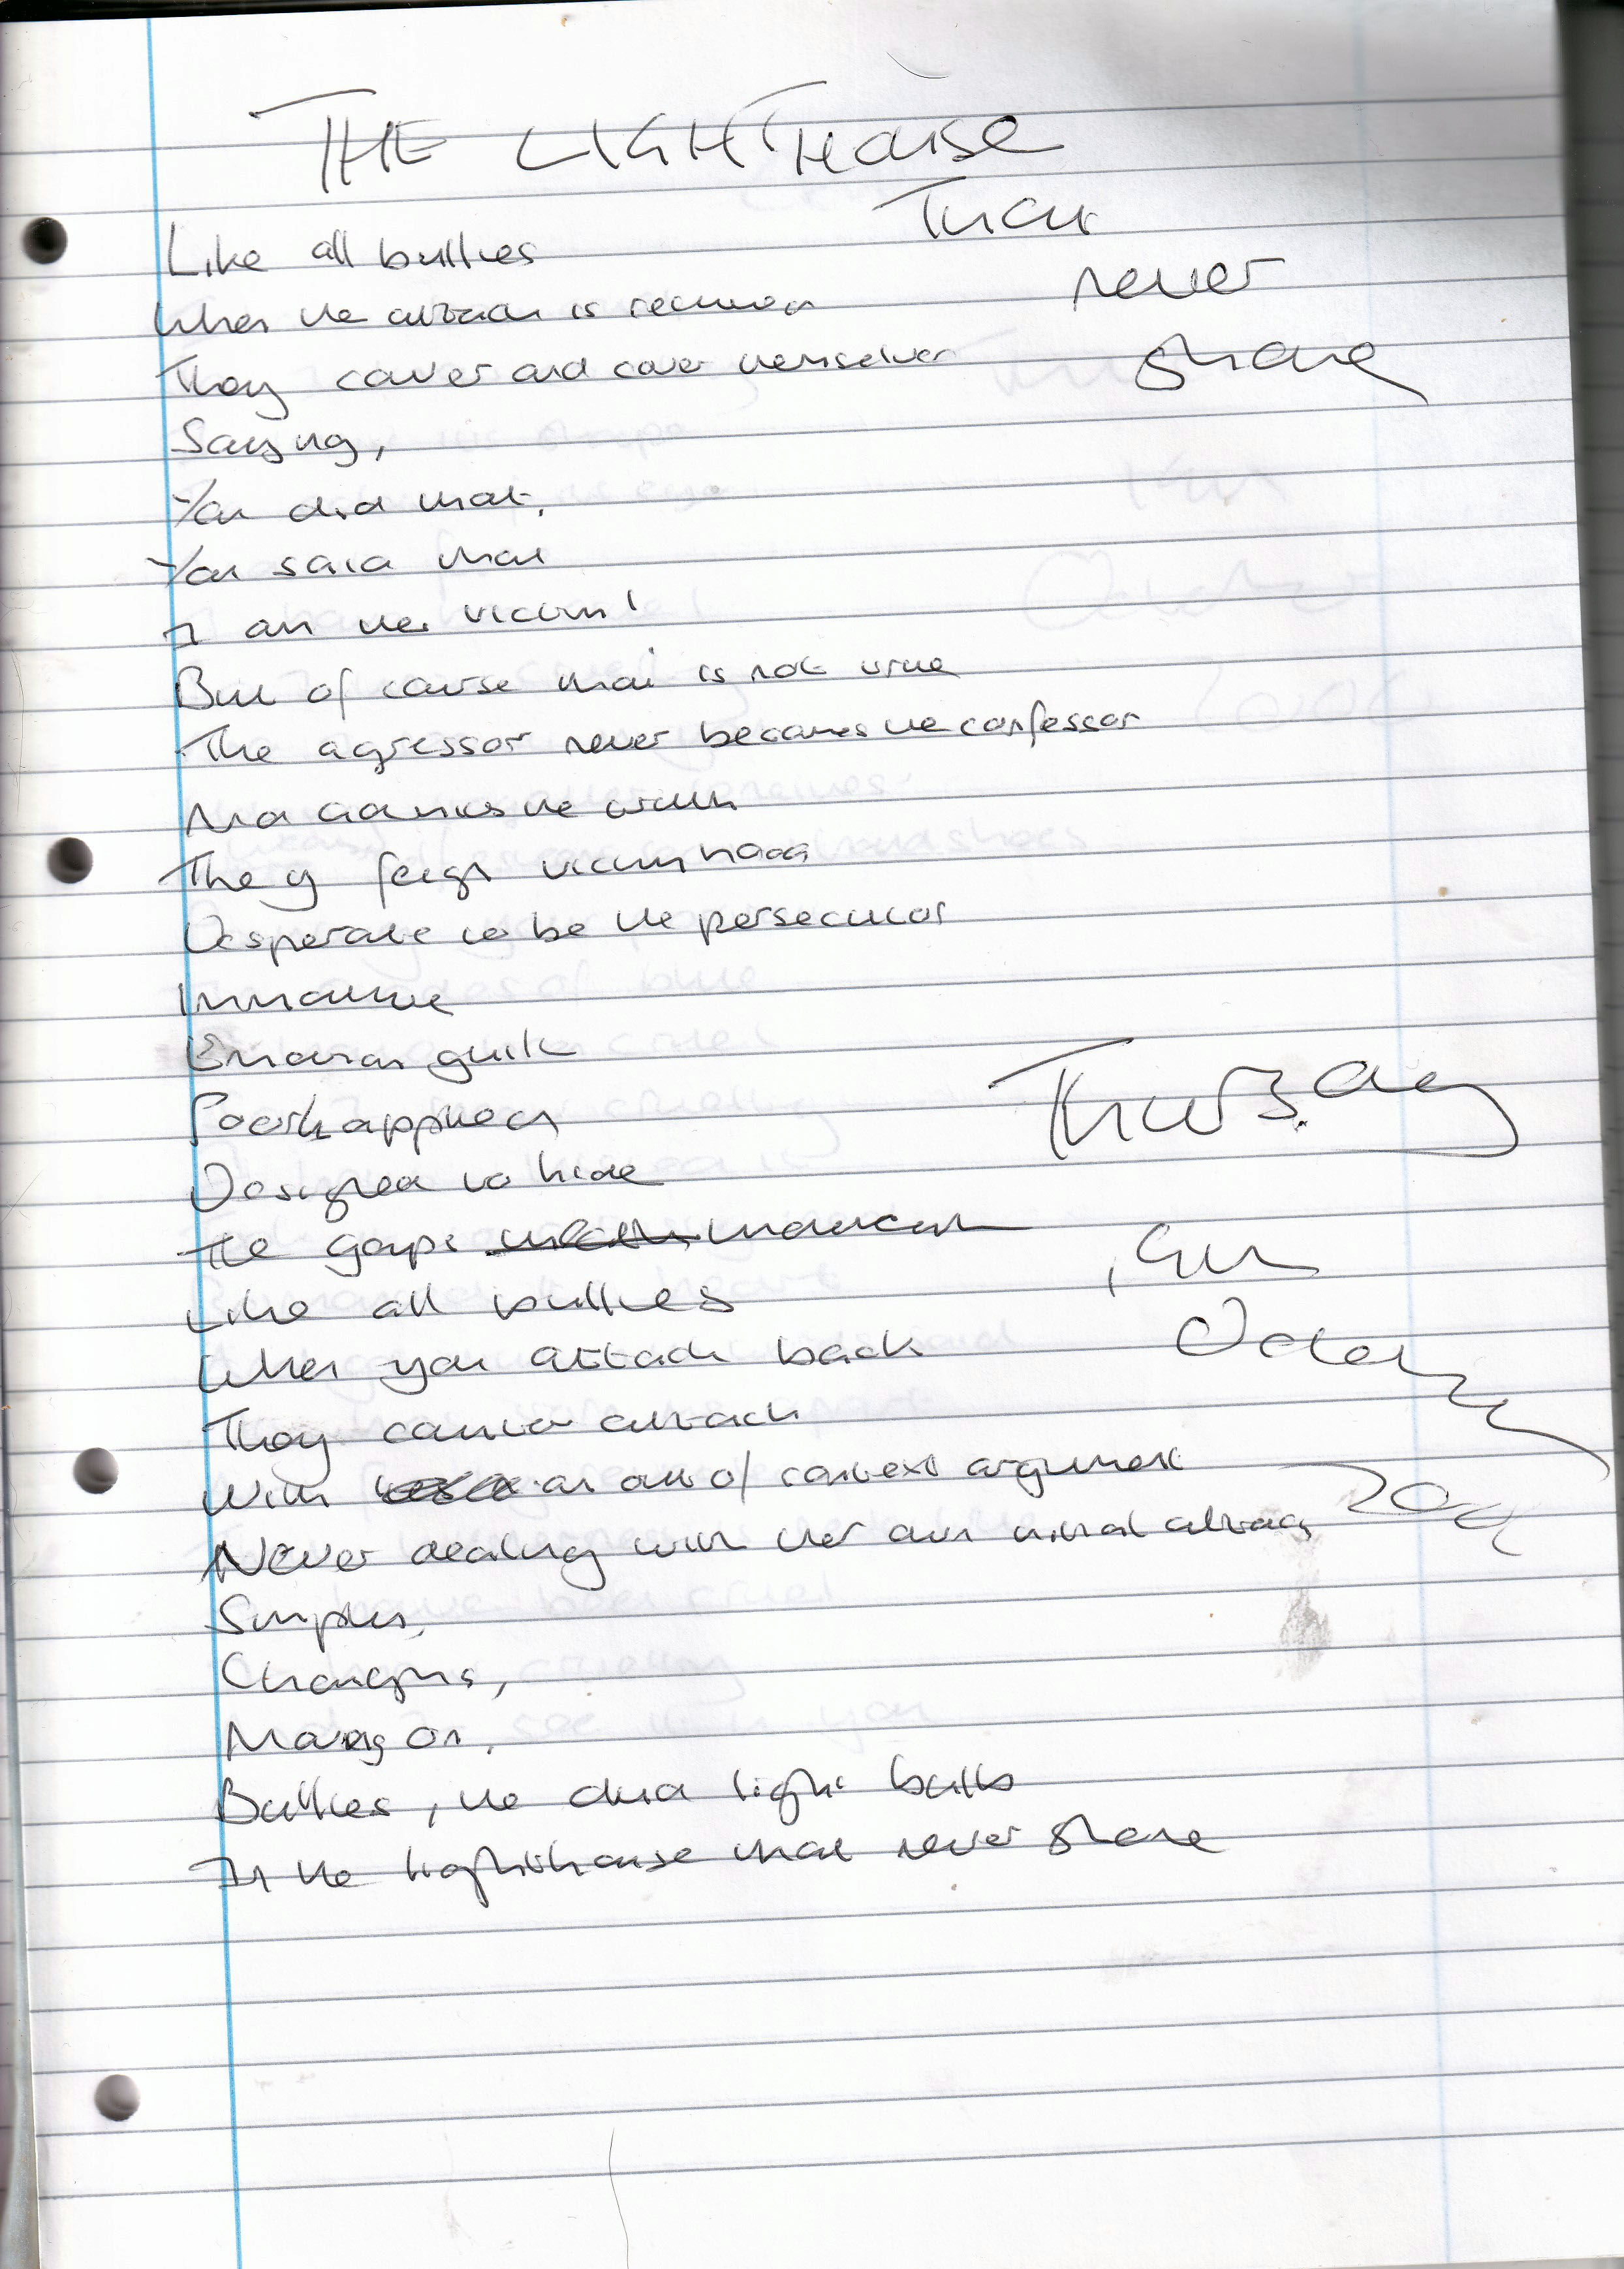 THE LIGHTHouse
That
never
shone
Like all bullies
When the attack is
They cower and cover themselves
Saying,
You did that,
You said that
I am the victim!
But of course that is not true
The agressor never becomes the confessor
the truth
They feign victimhood
Desperate to be the persecutor
Immature
guilt
Poorly applied
Designed to hide
The gaps
Like all bullies
When you attack back
They counter attack
With an out of context argument
Never dealing with their own initial attack
Thursday
9th
October
2014
Changing,
Moving on,
Bullies, the dud light bulbs
In the lighthouse that never shone